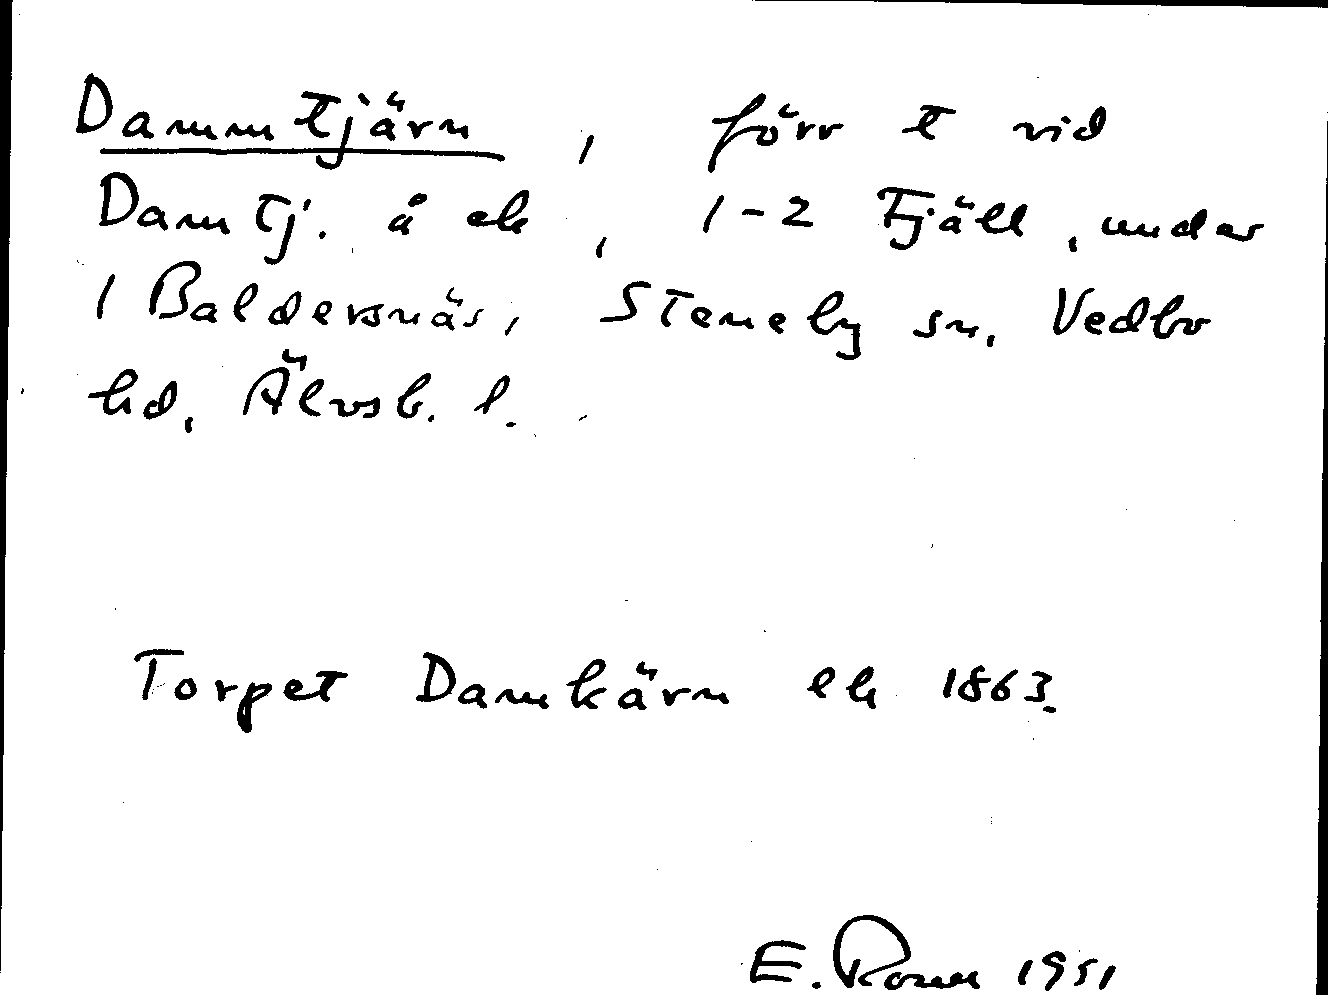 Dammtjärn, förr t vid
Damtj. å ek, 1-2 Fjäll, under
1 Baldersnäs, Steneby sn, Vedbo
hd, Älvsb. l.
Torpet Damkärn ek 1863.
E. 1951